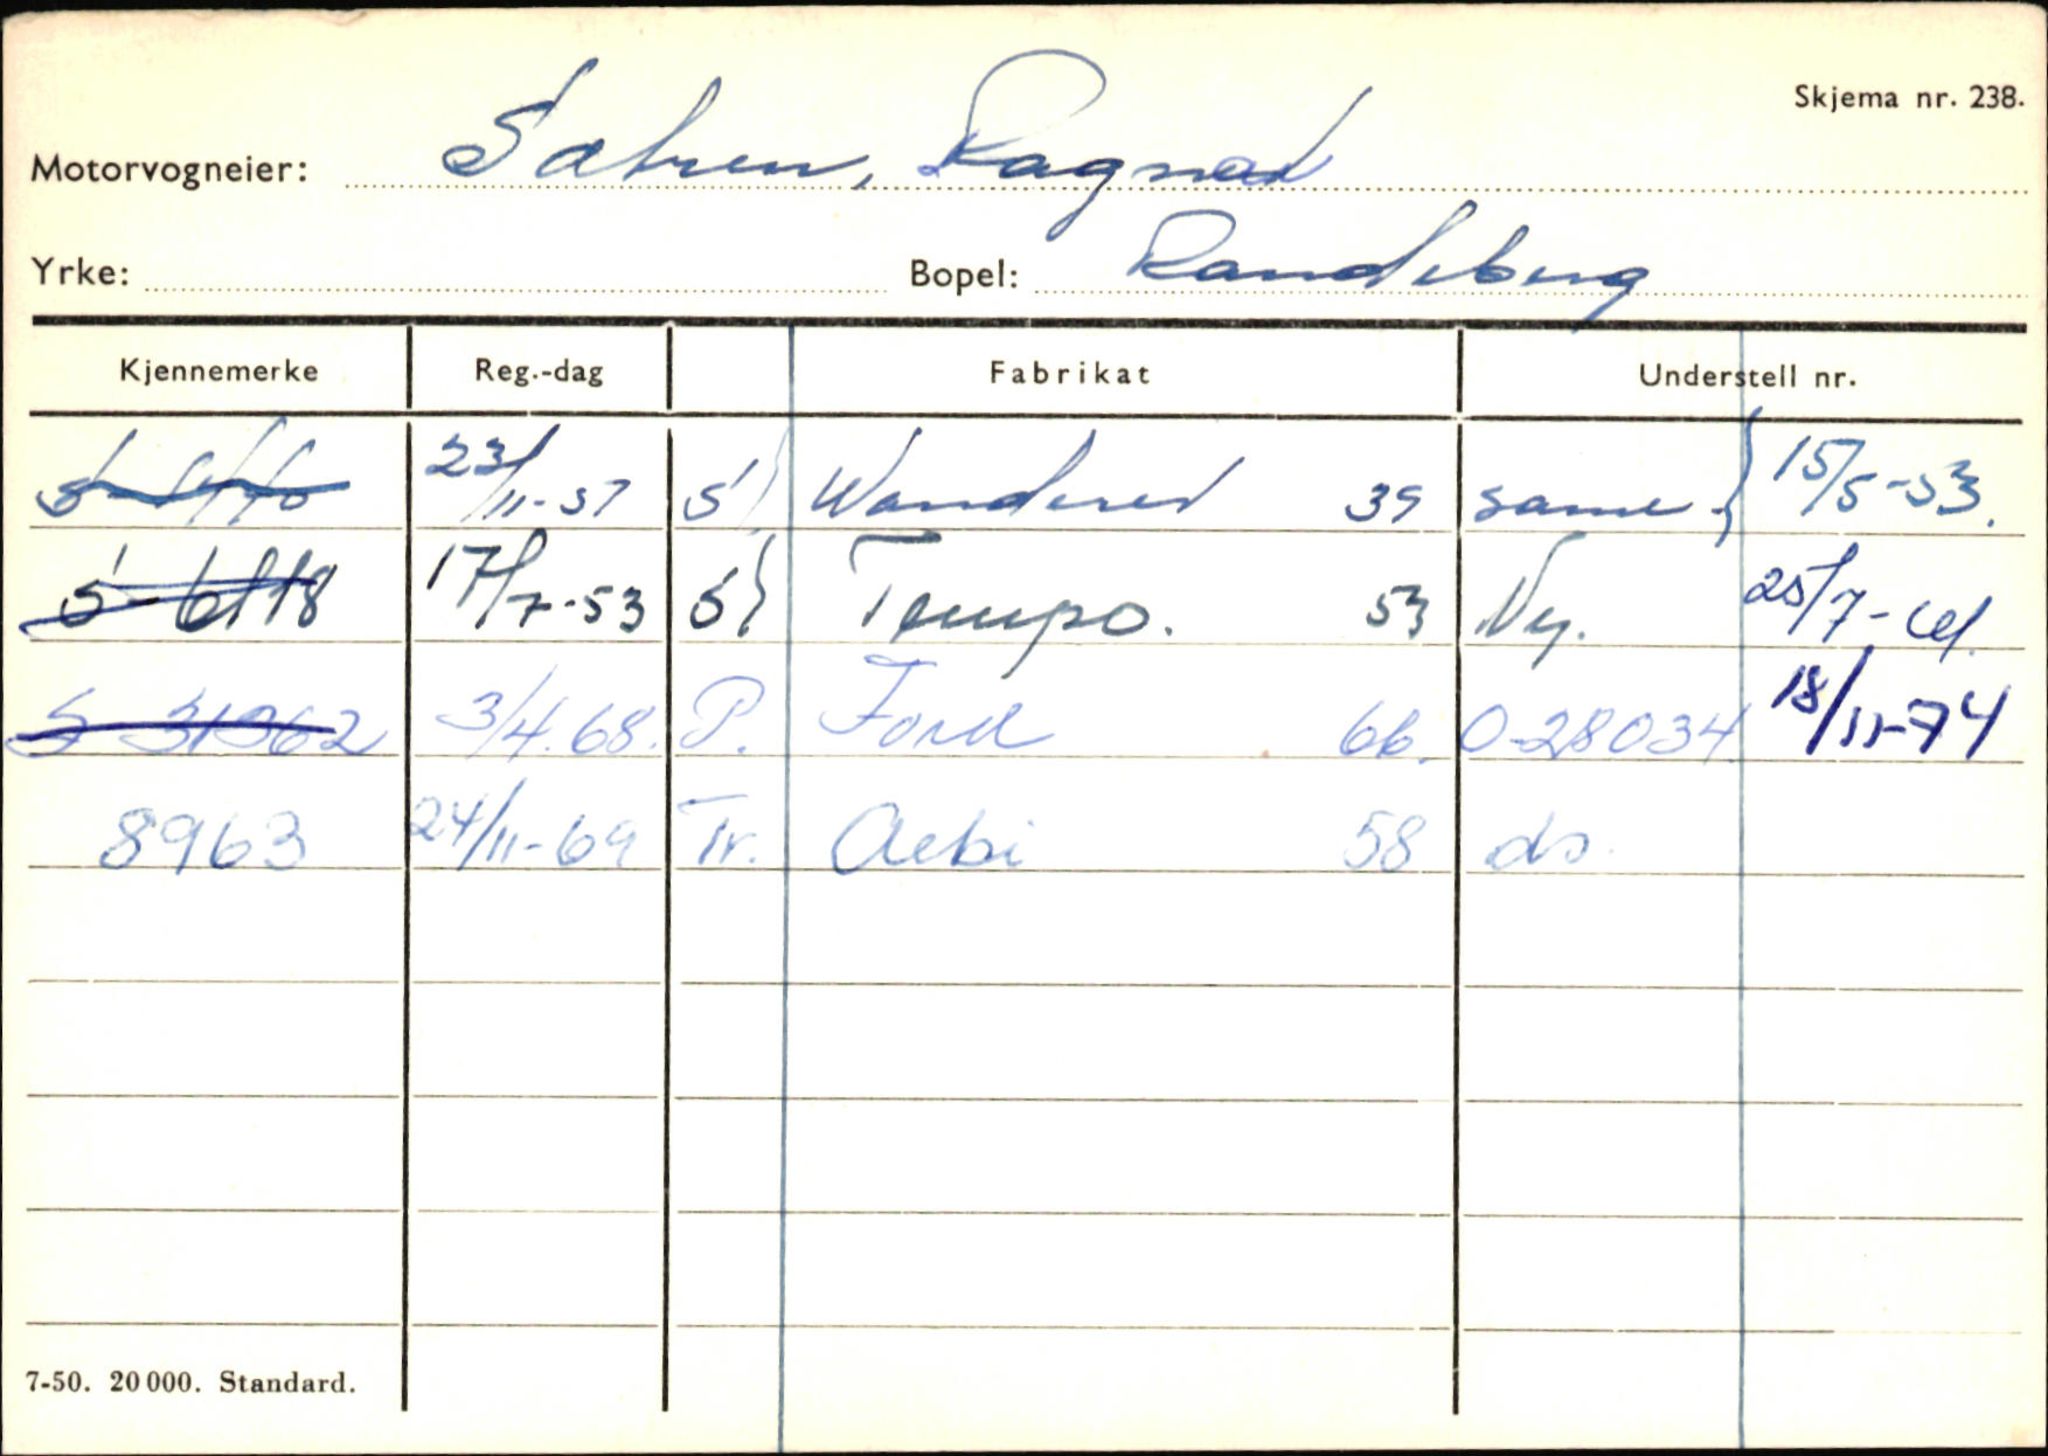 Skjema nr. 238.
Motorvogneier: Sætren, Ragnar
Yrke: Bopel: Randeberg
Kjennemerke Reg.-dag Fabrikat Understell nr.
23/11-51 S Wanderer 39 samme 15/5-53.
S-6118 17/7-53 S Tempo. 53 Ny. 25/7-61.
S 31962 3/4.68. P. Ford 66. 0-28034 18/11-74
8963 24/11-69 Tr. Aebi 58 do.
7-50. 20 000. Standard.